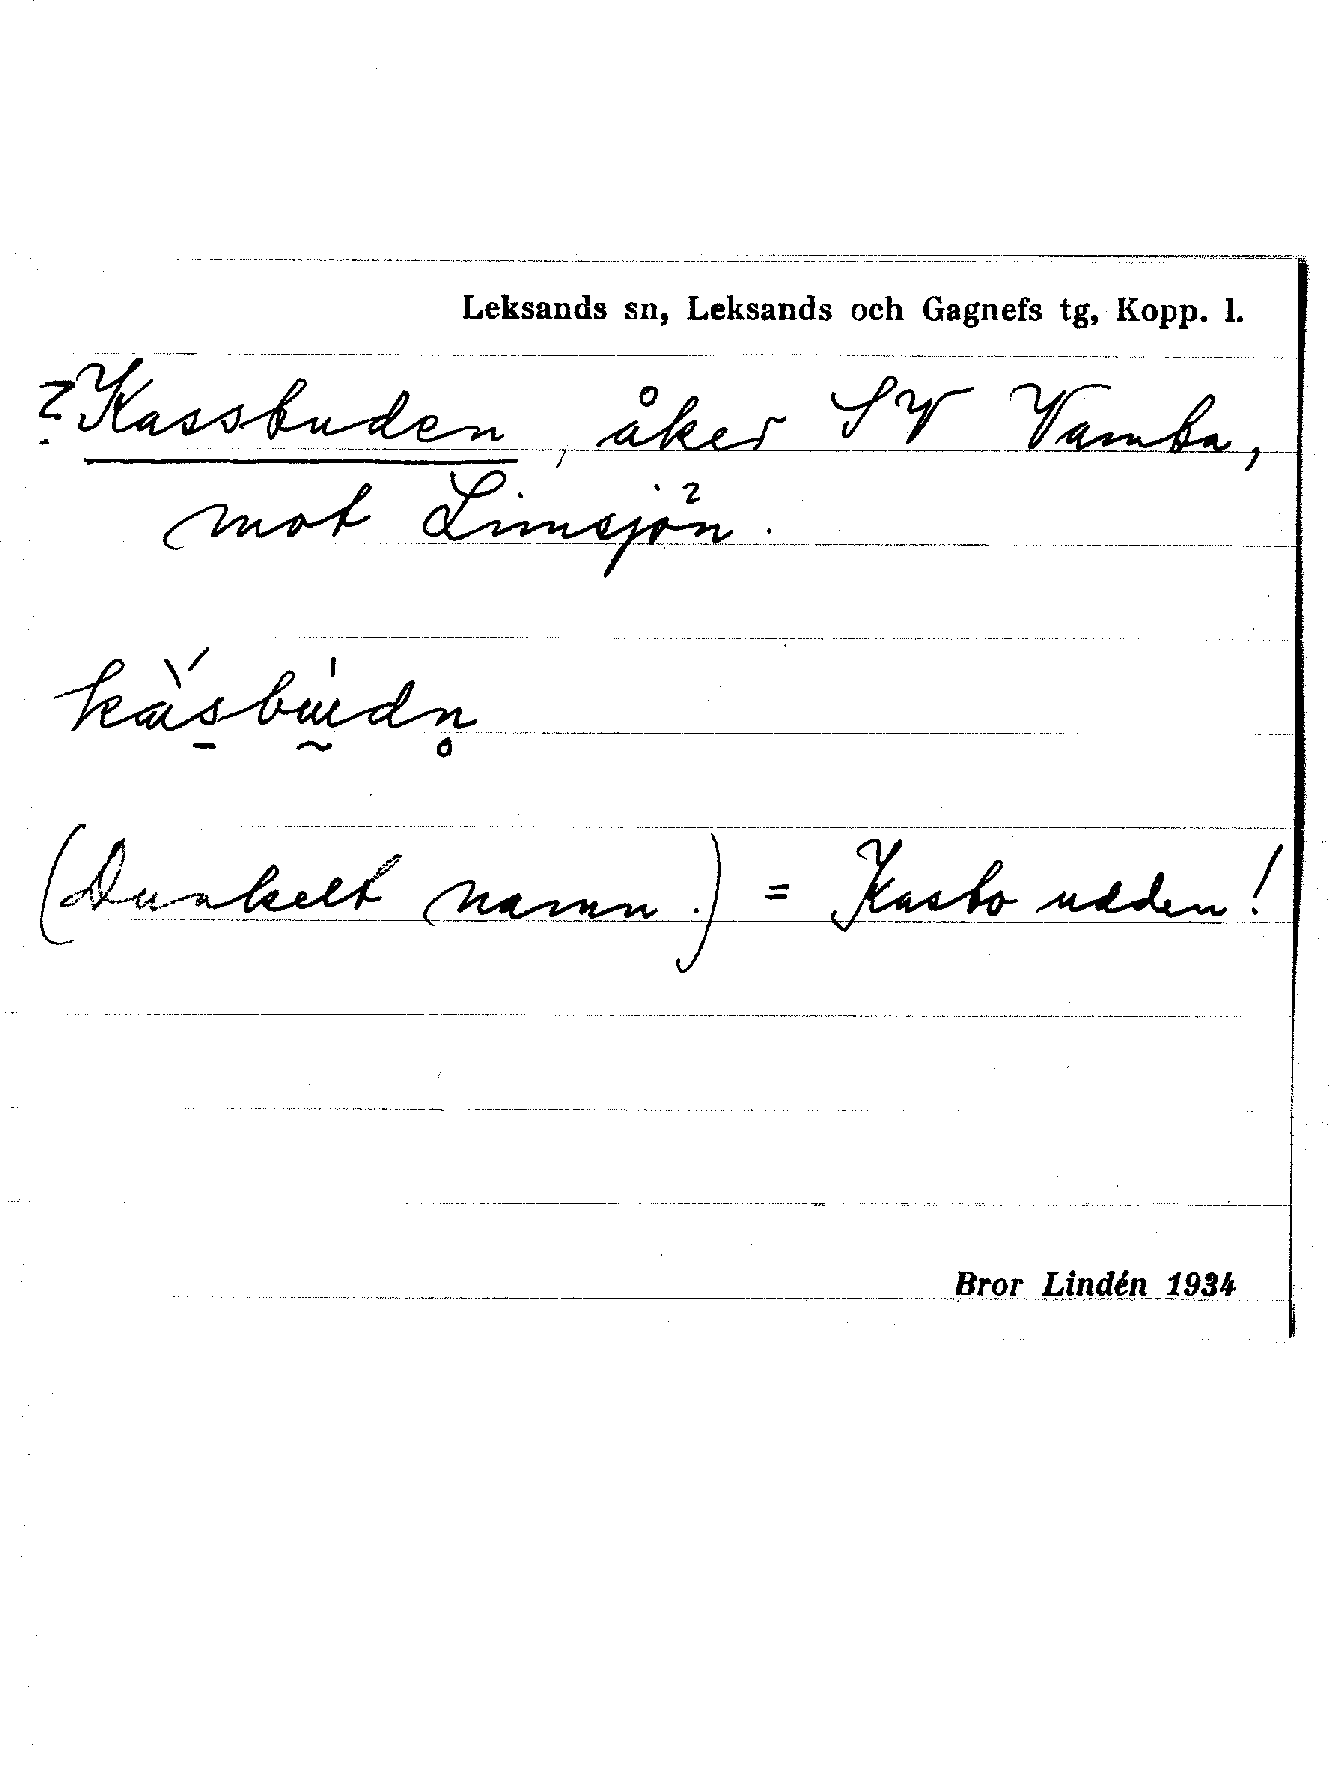 Leksands sn, Leksands och Gagnefs tg, Kopp. l.
? Kassbuden, åker SV Vamba,
mot Limsjön.
(Dunkelt namn.) = Kasboudden!
Bror Lindén 1934